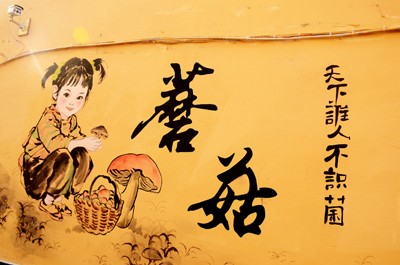 蘑菇
天下誰人不识菌